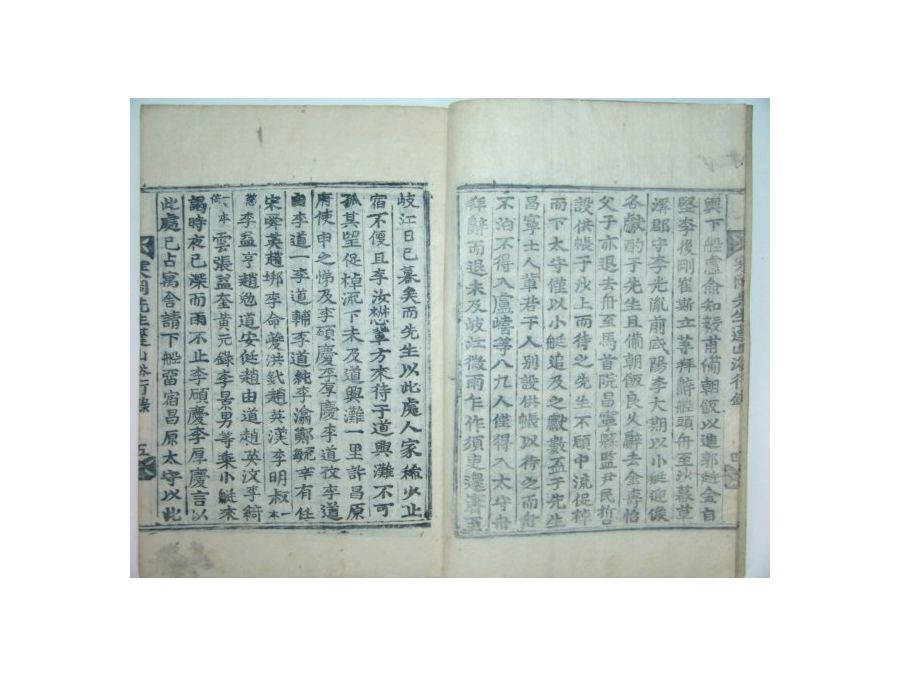 輿下船盧僉知毅甫備朝飯以進郭赾金自
堅李後剛崔斯立等拜辭船頭舟至沙
深郡守李光胤前咸陽李大期以小艇迎候
各獻酌于先生且備朝飯良久辭去金
父子亦退去舟至馬首院昌寧縣監尹民哲
設供帳于沙上而待之先生不顧中流促棹
而下太守僅以小艇追及之獻數盃于先生
昌寧士人輩若干人別設供帳以待之而舟
不泊不得入盧等八九人僅得入太守舟
拜辭而退未及岐江微雨乍作須臾還霽至
岐江日已暮矣而先生以此處人家稀少止
宿不便且李汝懋輩方來待于道興灘不可
孤其望促棹流下未及道興灘一里許昌原
府使申之悌及李碩慶李厚慶李道孜李道
由李道一李道輔李道純李瀹鄭辛有任
宋舜英趙垹李命夔洪鈛趙英漢李明叔一本
蕃李益亨趙勉道安侹趙由道趙英汶李綺
一本脩雲張益奎黃元錄李景男等乘小艇來
謁時夜已深而雨不止李碩慶李厚慶言以
此處已占寓舍請下船留宿昌原太守以此
寒岡先生蓬山浴行錄 五